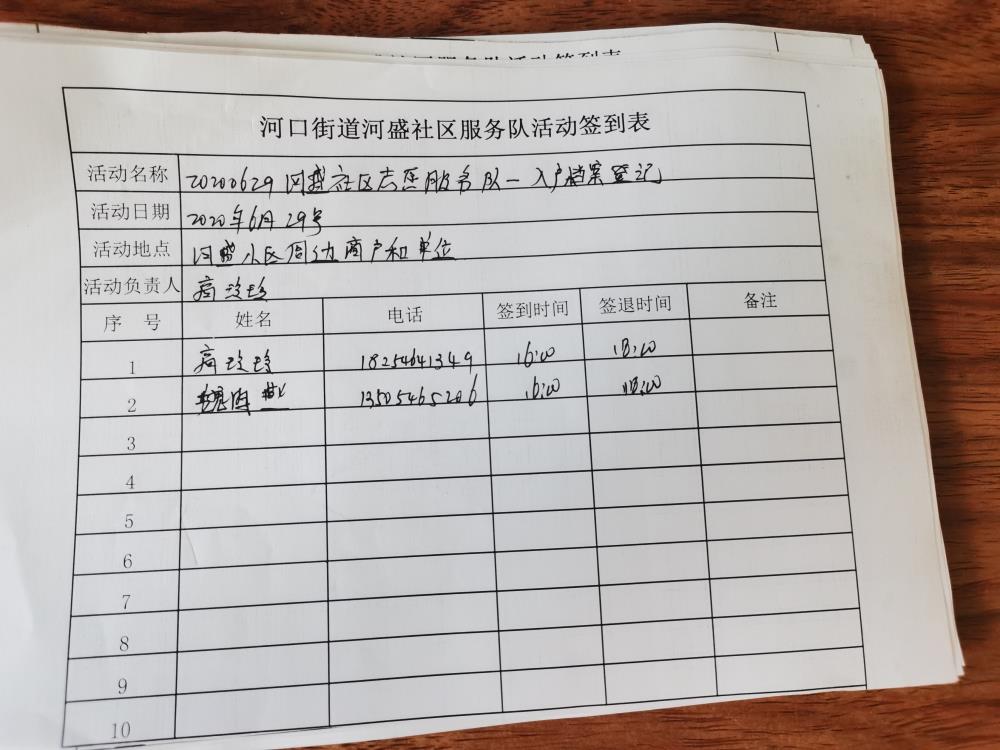 河口街道河盛社区服务队活动签到表
活动名称 20200629河盛社区志愿服务队一入户档案登记
活动日期 2020年6月29号
活动地点 河盛小区周边商户和单位
活动负责人 高玲玲
序号 姓名 电话 签到时间 签退时间 备注
1 高玲玲 18254641349 16:00 18:00
2 13505465206 16:00 18:00
3
4
5
6
7
8
9
10